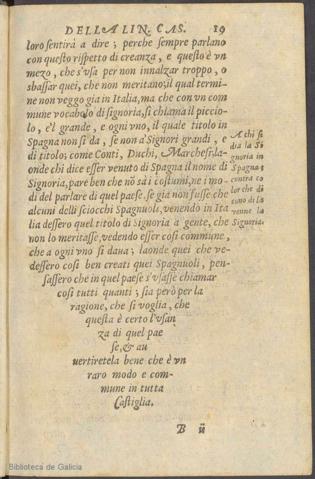 DELLA LIN. CAS. 19
loro sentirà a dire; perche sempre parlano
con questo rispetto di creanza, e questo è vn
mezo, che s'vsa per non innalzar troppo, o
sbassar quei, che non meritano; il qual termi-
ne non veggo gia in Italia, ma che con vn com
mune vocabolo di signoria, si chiama il piccio-
lo, e'l grande, e ogni vno, il quale titolo in
Spagna non si da, se non a Signori grandi, e
di titolo; come Conti, Duchi, Marchesi, la-
onde chi dice esser venuto di Spagna il nome di
Signoria, pare ben che nō sà i costumi, ne i mo-
di del parlare di quel paese. se già non fusse che
alcuni delli sciocchi Spagnuoli, venendo in Ita
lia dessero quel titolo di Signoria a gente, che
non lo meritasse, vedendo esser cosi commune,
che a ogni vno si daua; laonde quei che ve-
dessero cosi ben creati quei Spagnuoli, pen-
sassero che in quel paese s'vsasse chiamar
cosi tutti quanti; sia però per la
ragione, che si voglia, che
questa è certo l'vsan
za di quel pae
se, & au
uertiretela bene che è vn
raro modo e com-
mune in tutta
Castiglia.
B ii
A chi si
dia la Si
gnoria in
Spagna;
contra co
lor che di
cono di là
venne la
Signoria.
Biblioteca de Galicia